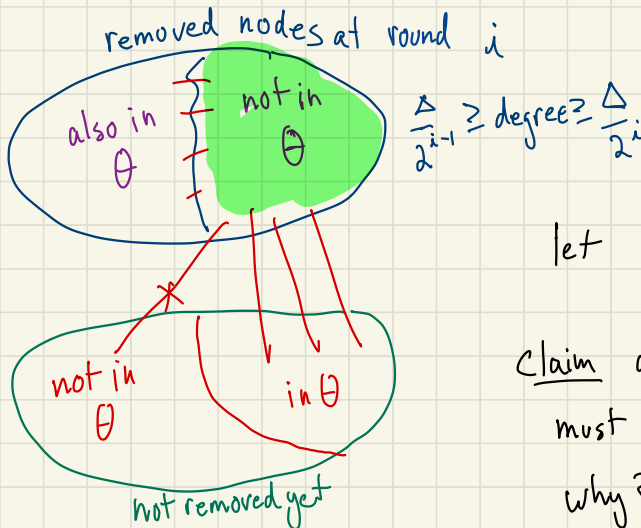 removed nodes at round i
also in
θ
not in
θ
Δ/2^{i-1} ≥ degree ≥ Δ/2^i
let
Claim
must
not in
θ
in θ
why?
not removed yet